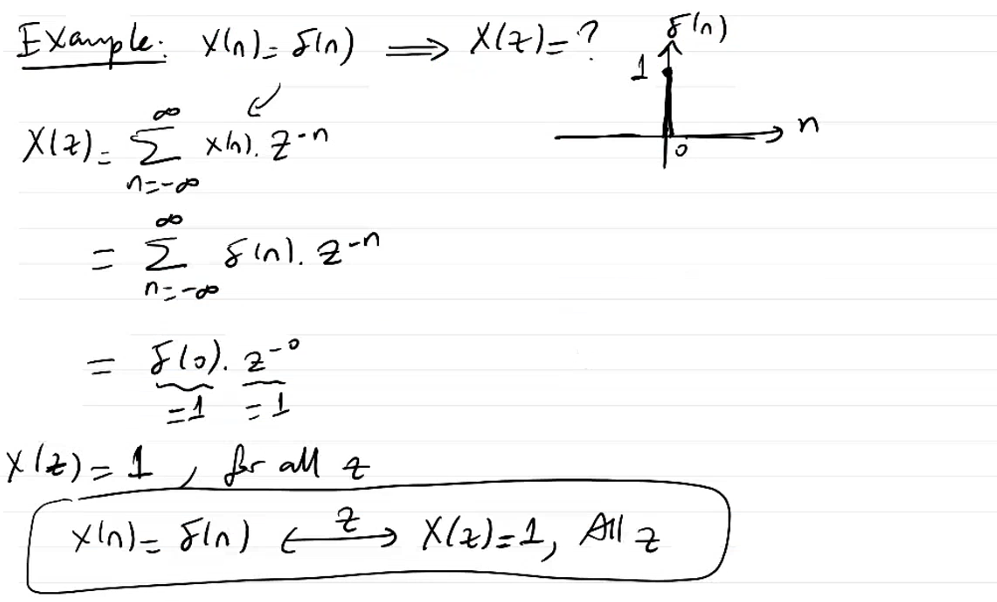 Example: x(n) = δ(n) ⟹ X(z) = ?
δ(n)
1
n
0
X(z) = ∑_{n=-∞}^{∞} x(n). z^{-n}
= ∑_{n=-∞}^{∞} δ(n). z^{-n}
= δ(0). z^{-0}
=1 =1
X(z) = 1 , for all z
x(n) = δ(n) ⟷^{z} X(z) = 1, All z